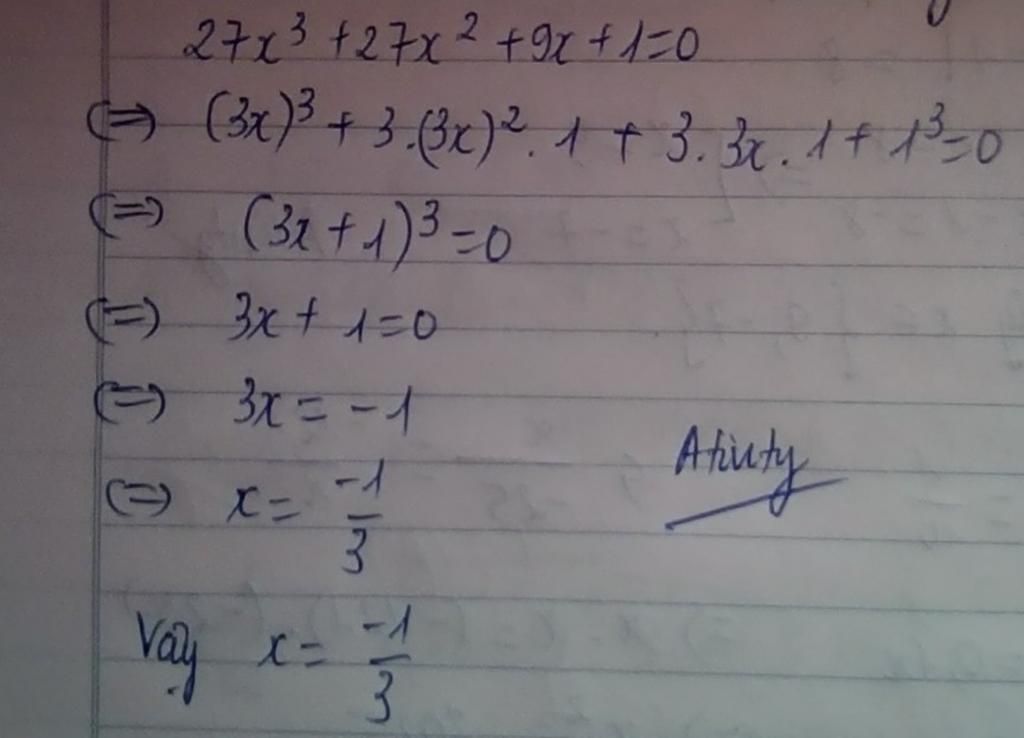 27x³ + 27x² + 9x + 1 = 0
(=) (3x)³ + 3.(3x)². 1 + 3. 3x. 1 + 1³ = 0
(=) (3x + 1)³ = 0
(=) 3x + 1 = 0
(=) 3x = -1
(=) x = -1/3
Vậy x = -1/3